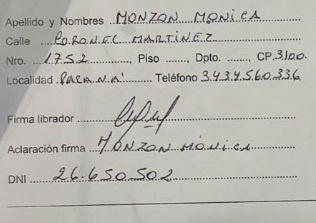 Apellido y Nombres ..MONZON MONICA
Calle ....CORONEL MARTINEZ
Nro. ..1752........, Piso ......., Dpto. ......., CP.3100.
Localidad .PARANA'......... Teléfono 3434560336
Firma librador
Aclaración firma ..MONZON MONICA
DNI ......26.650.502